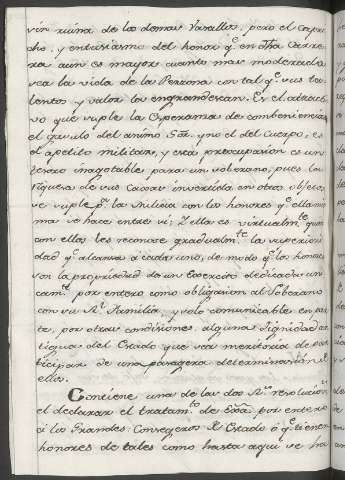 vin ruina de los demas Vasallos, pero el Capri-
cho, y entusiasmo del honor q.e en dha Carre-
ra aun es mayor cuanto mas moderada
sea la vida de las Personas con tal q.e sus ta-
lentos y valor la engrandescan. Es el atrac-
vo que suple la Esperanza de combeniencias
el del animo y no el del Cuerpo, es
el apetito militar, y esta preocupacion es un
tesoro inagotable para un soberano, pues la
riqueza de sus Casas invertida en otros objetos
se suple p.r la Milicia con los honores q.e ella mis-
ma se hace entre si; Y ellas es virtualm.te quien
en ellos les reconose gradualm.te la superiori-
dad q.e alcanza à cada uno, de modo q.e los honores
son la propriedad de un Exercito dedicado uni-
cam.te por entero como obligacion al Soberano
con su R.l Familia, y solo comunicable en par-
te, por otras condiciones, alguna Dignidad an-
tigua del Estado que sea meritoria de par-
ticipar de una pasagera determinacion de
ellos.
Contiene una de las dos R.s resolucion.s
el declarar el tratam.to de Exâ por entero
à los Grandes: Consegeros de Estado ò q.e tienen
honores de tales como hasta aqui se ha